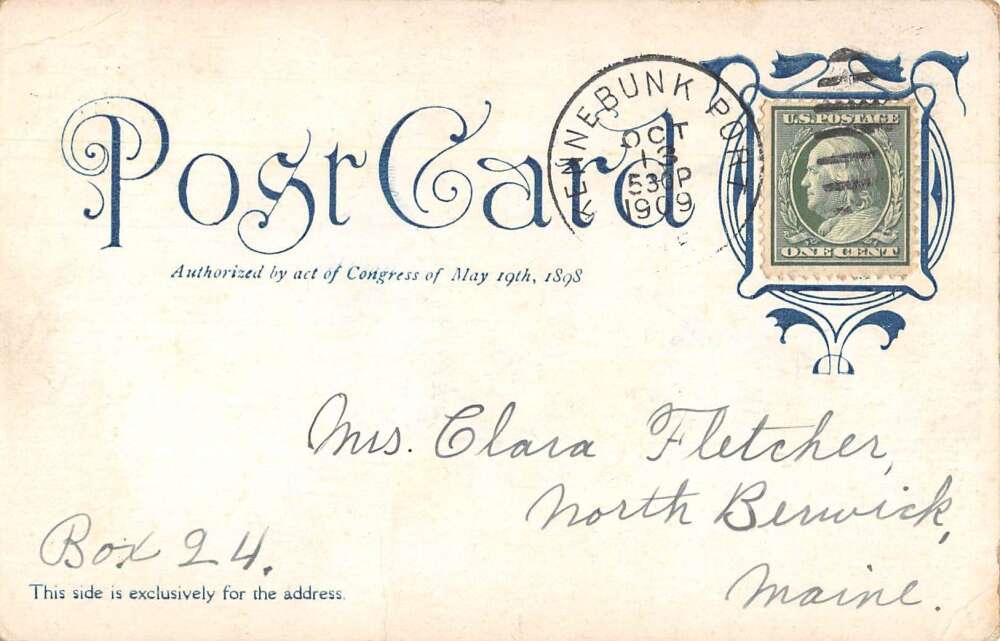 Post Card
Authorized by act of Congress of May 19th, 1898
KENNEBUNK PORT
OCT
13
530P
1909
U.S. POSTAGE
ONE CENT
Mrs. Clara Fletcher,
North Berwick,
Maine.
Box 24.
This side is exclusively for the address.